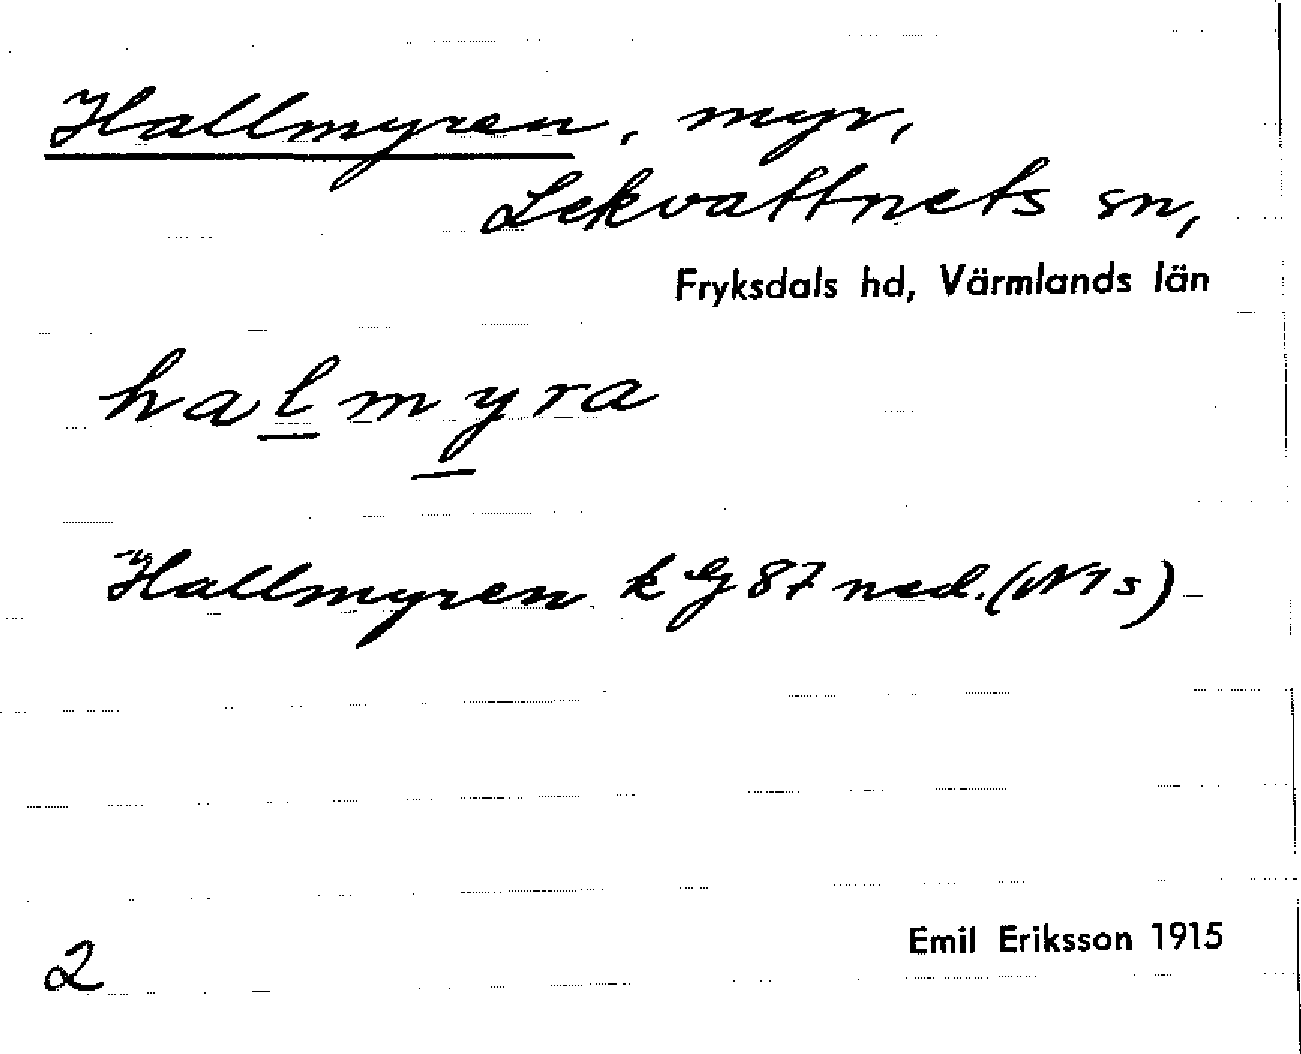 Hallmyren, myr,
Lekvattnets sn,
Fryksdals hd, Värmlands län
halmyra
Hallmyren k G 87 ned. (N1s)
2
Emil Eriksson 1915